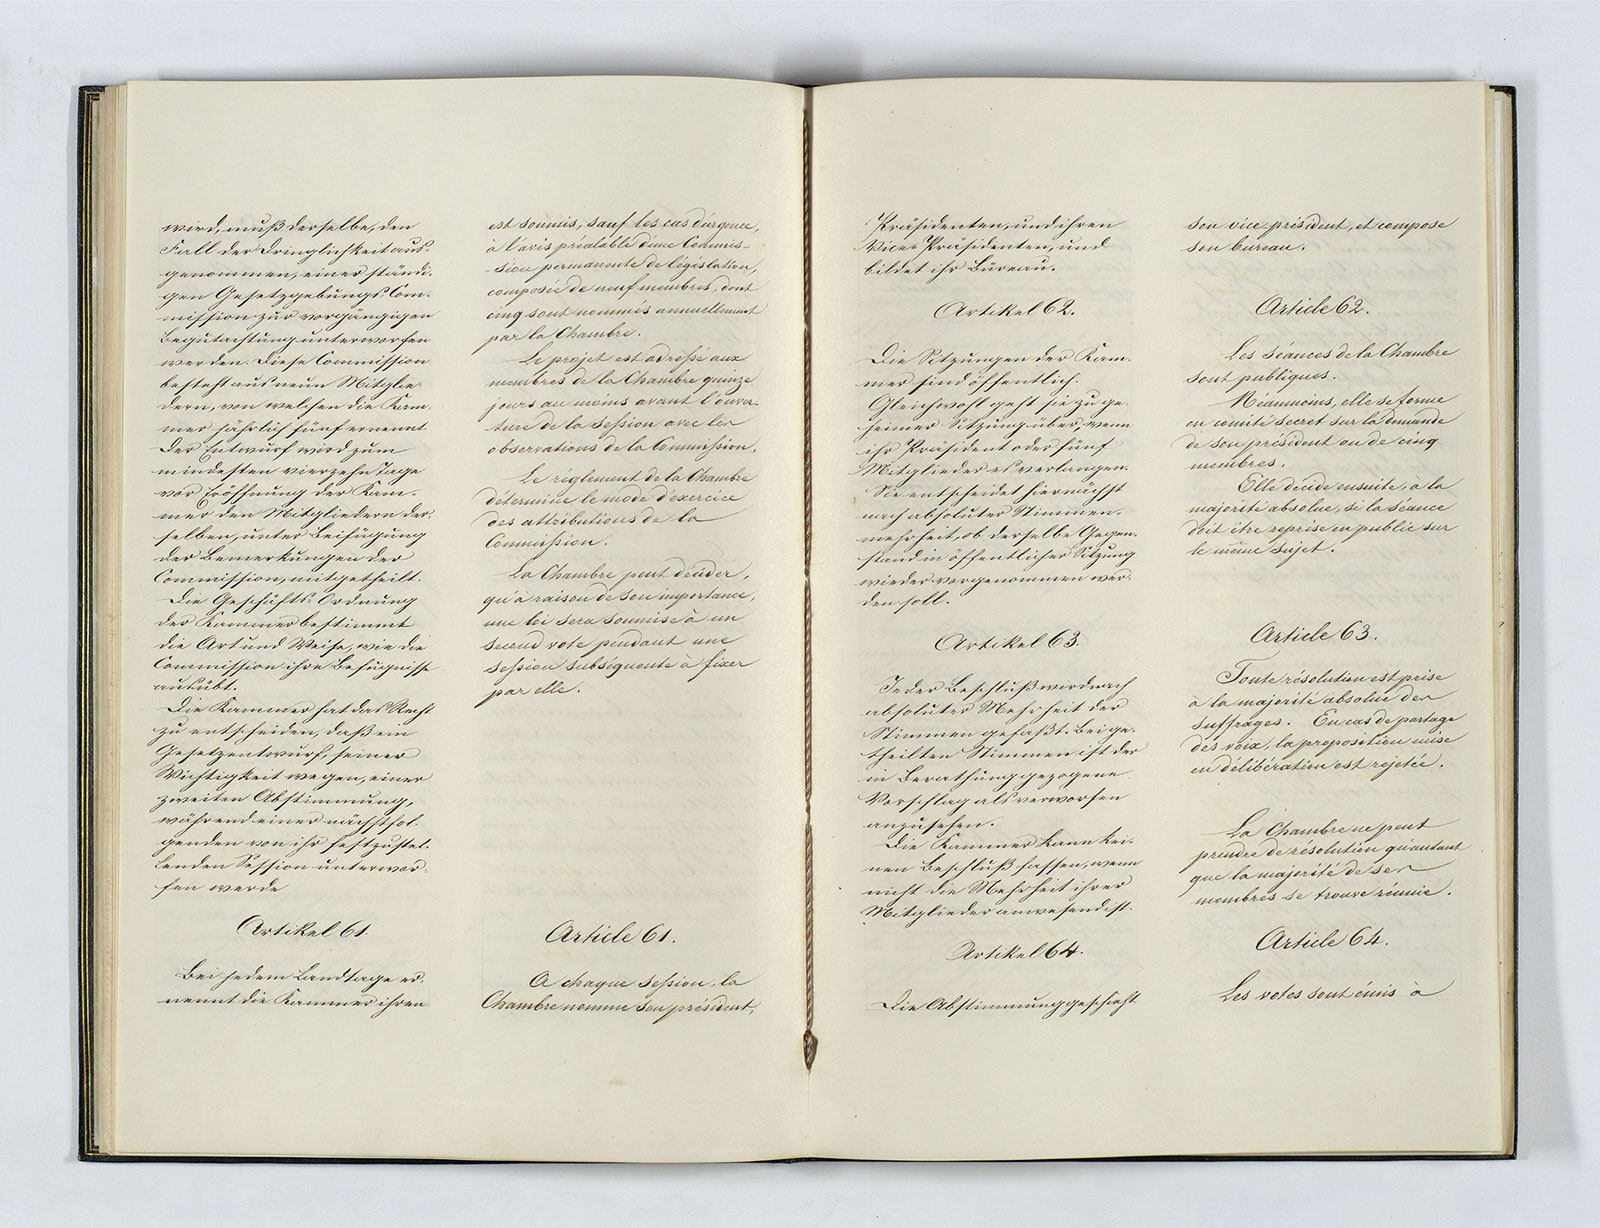 wird, muß derselbe, den
Fall der Dringlichkeit aus-
genommen, einer ständi-
gen Gesetzgebungs-Com-
mission zur vorgängigen
Begutachtung unterworfen
werden. Diese Commission
besteht aus neun Mitglie-
dern, von welchen die Kam-
mer jährlich fünf ernennt.
Der Entwurf wird zum
mindesten vierzehn Tage
vor Eröffnung der Kam-
mer den Mitgliedern der-
selben, unter Beifügung
der Bemerkungen der
Commission, mitgetheilt.
Die Geschäfts-Ordnung
der Kammer bestimmt
die Art und Weise, wie die
Commission ihre Befugnisse
ausübt.
Die Kammer hat das Recht
zu entscheiden, daß ein
Gesetzentwurf, seiner
Wichtigkeit wegen, einer
zweiten Abstimmung,
während einer nächstfol-
genden von ihr festzustel-
lenden Session unterwor-
fen werde
Artikel 61.
Bei jedem Landtage er-
nennt die Kammer ihren
est soumis, sauf les cas d'urgence,
à l'avis préalable d'une Commis-
sion permanente de législation,
composée de neuf membres, dont
cinq sont nommés annuellement
par la Chambre.
Le projet est adressé aux
membres de la Chambre quinze
jours au moins avant l'ouver-
ture de la session avec les
observations de la Commission.
Le règlement de la Chambre
détermine le mode d'exercice
des attributions de la
Commission.
La Chambre peut décider,
qu'à raison de son importance,
une loi sera soumise à un
second vote pendant une
session subséquente à fixer
par elle.
Article 61.
A chaque session, la
Chambre nomme son président,
Präsidenten, und ihren
Vice-Präsidenten, und
bildet ihr Büreau.
Artikel 62.
Die Sitzungen der Kam-
mer sind öffentlich.
Gleichwohl geht sie zu ge-
heimer Sitzung über, wenn
ihr Präsident oder fünf
Mitglieder es verlangen.
Sie entscheidet hiernächst
nach absoluter Stimmen-
mehrheit, ob derselbe Gegen-
stand in öffentlicher Sitzung
wieder vorgenommen wer-
den soll.
Artikel 63.
Jeder Beschluß wird nach
absoluter Mehrheit der
Stimmen gefaßt. Bei ge-
theilten Stimmen ist der
in Berathung gezogene
Vorschlag als verworfen
anzusehen.
Die Kammer kann kei-
nen Beschluß fassen, wenn
nicht die Mehrheit ihrer
Mitglieder anwesend ist.
Artikel 64.
Die Abstimmung geschieht
son vice-président, et compose
son bureau.
Article 62.
Les séances de la Chambre
sont publiques.
Néanmoins, elle se forme
en comité secret sur la demande
de son président ou de cinq
membres.
Elle décide ensuite, à la
majorité absolue, si la séance
doit être reprise en public sur
le même sujet.
Article 63.
Toute résolution est prise
à la majorité absolue des
suffrages. En cas de partage
des voix, la proposition mise
en délibération est rejetée.
La Chambre ne peut
prendre de résolution qu'autant
que la majorité de ses
membres se trouve réunie.
Article 64.
Les votes sont émis à